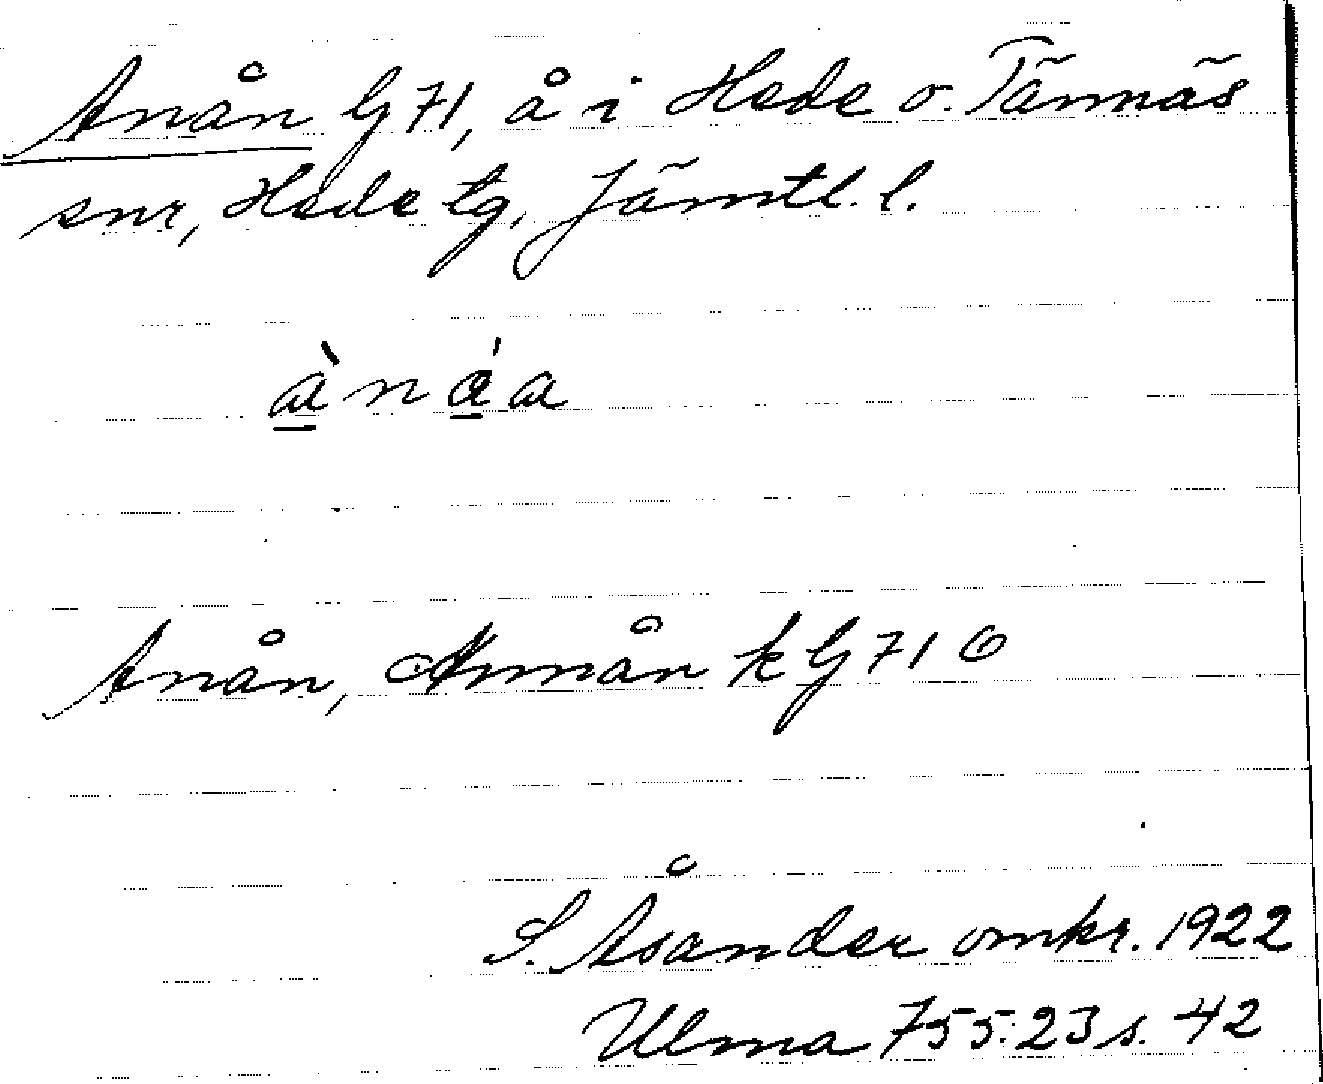 Anån G71, å i Hede o. Tännäs
snr, Hede tg, Jämtl. l.
ànáa
Anån, Annån k G71 O
S. Åsander omkr. 1922
Ulma 755:23 s. 42